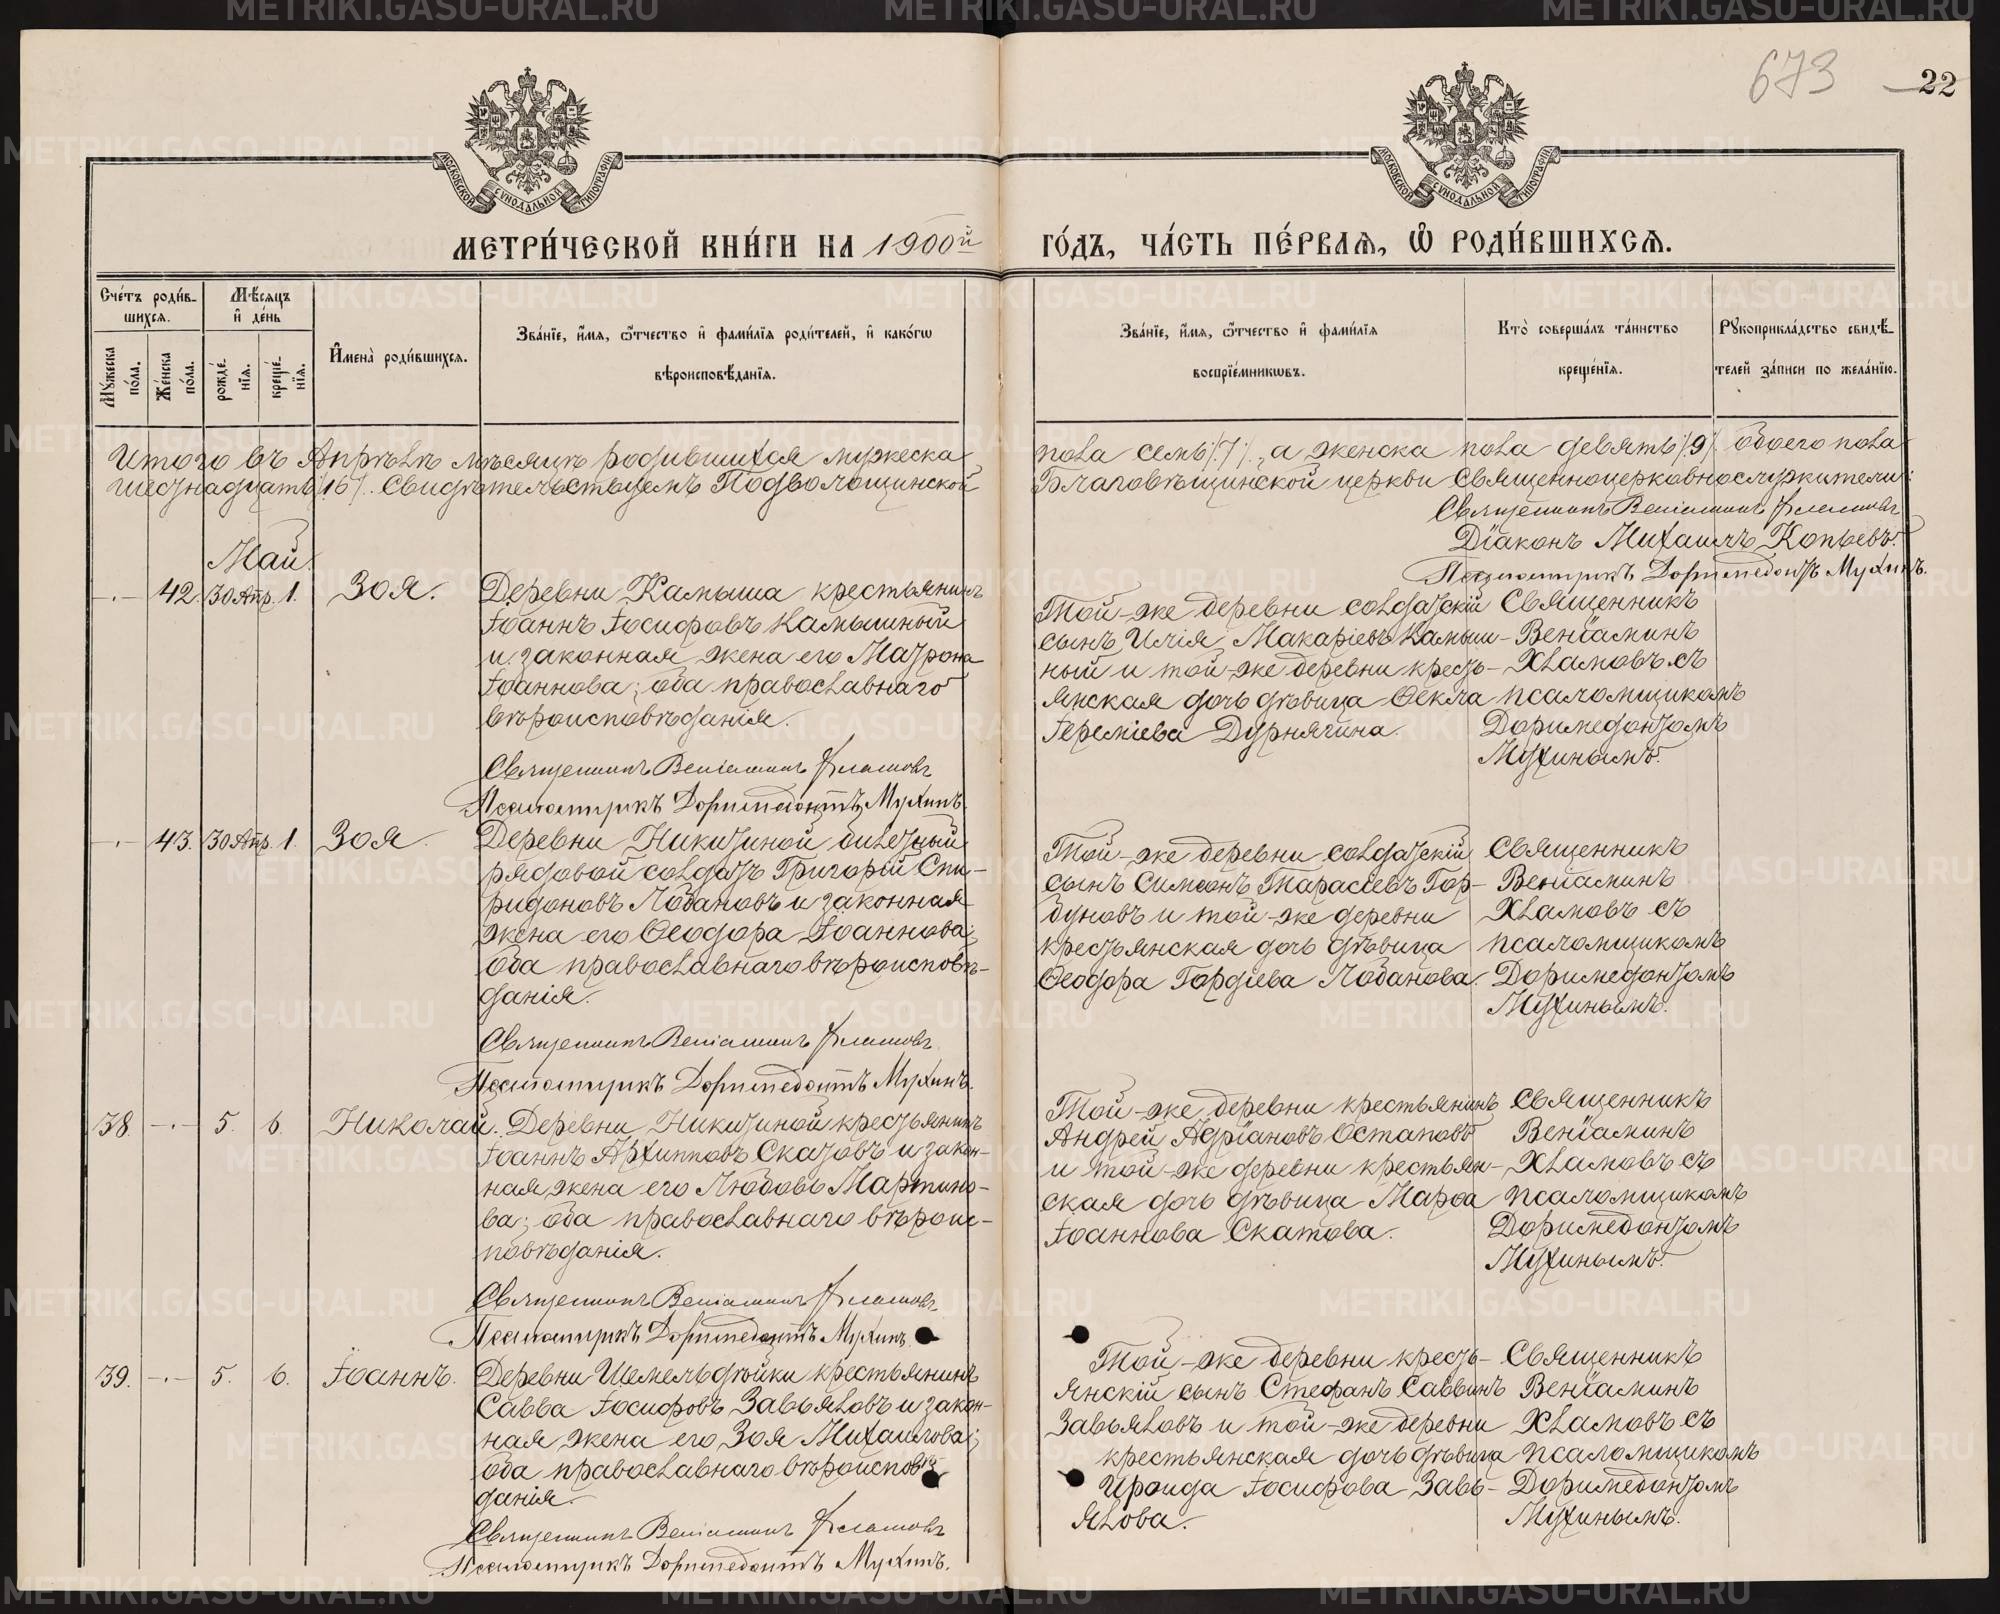 673
22
МОСКОВСКОЙ СѴНОДАЛЬНОЙ ТИПОГРАФІИ
МОСКОВСКОЙ СѴНОДАЛЬНОЙ ТИПОГРАФІИ
МЕТРИ́ЧЕСКОЙ КНИ́ГИ НА 1900й
ГО́ДЪ, ЧА́СТЬ ПЕ́РВАЯ, Ѿ РОДИ́ВШИХСЯ.
Сче́тъ роди́в-
шихся.
Мѣ́сяцъ
и҆ де́нь
Мꙋ́жеска
по́ла.
Же́нска
по́ла.
рожде́-
нїя.
креще́-
нїя.
И҆мена̀ роди́вшихся.
Зва́нїе, и҆́мя, ѻ҆́тчество и҆ фами́лїя роди́телей, и҆ како́гѡ
вѣроисповѣ́данїя.
Зва́нїе, и҆́мя, ѻ҆́тчество и҆ фами́лїя
воспрїе́мникѡвъ.
Кто̀ соверша́лъ та́инство
креще́нїя.
Рꙋкоприкла́дство свидѣ́-
телей за́писи по жела́нїю.
Итого въ Апрѣлѣ мѣсяцѣ родившихся мужеска
шестнадцать /16/. Свидѣтельствуемъ Подволошинской
пола семь /7/, а женска пола девять /9/. обоего пола
Благовѣщинской церкви Священноцерковнослужители:
Священникъ Веніаминъ Хламовъ
Діаконъ Михаилъ Копьевъ.
Псаломщикъ Доримедонтъ Мухинъ.
Май.
-.- 42. 30 Апр. 1. Зоя.
Деревни Камыша крестьянинъ
Іоаннъ Іосифовъ Камышный
и законная жена его Матрона
Іоаннова; оба православнаго
вѣроисповѣданія.
Священникъ Веніаминъ Хламовъ
Псаломщикъ Доримедонтъ Мухинъ.
Той-же деревни солдатскій
сынъ Илія Макаріевъ Камыш-
ный и той-же деревни кресть-
янская дочь дѣвица Ѳекла
Іереміева Дурнягина.
Священникъ
Веніаминъ
Хламовъ съ
псаломщикомъ
Доримедонтомъ
Мухинымъ.
-.- 43. 30 Апр. 1. Зоя.
Деревни Никитиной билетный
рядовой солдатъ Григорій Спи-
ридоновъ Лобановъ и законная
жена его Ѳеодора Іоаннова;
оба православнаго вѣроисповѣ-
данія.
Священникъ Веніаминъ Хламовъ
Псаломщикъ Доримедонтъ Мухинъ.
Той-же деревни солдатскій
сынъ Симеонъ Тарасіевъ Гор-
буновъ и той-же деревни
крестьянская дочь дѣвица
Ѳеодора Гордіева Лобанова.
Священникъ
Веніаминъ
Хламовъ съ
псаломщикомъ
Доримедонтомъ
Мухинымъ.
38. -.- 5. 6. Николай.
Деревни Никитиной крестьянинъ
Іоаннъ Архипповъ Скатовъ и закон-
ная жена его Любовь Мартино-
ва; оба православнаго вѣроис-
повѣданія.
Священникъ Веніаминъ Хламовъ
Псаломщикъ Доримедонтъ Мухинъ.
Той-же деревни крестьянинъ
Андрей Адріановъ Остаповъ
и той-же деревни крестьян-
ская дочь дѣвица Марѳа
Іоаннова Скатова.
Священникъ
Веніаминъ
Хламовъ съ
псаломщикомъ
Доримедонтомъ
Мухинымъ.
39. -.- 5. 6. Іоаннъ.
Деревни Шемельдѣйки крестьянинъ
Савва Іосифовъ Завьяловъ и закон-
ная жена его Зоя Михаилова;
оба православнаго вѣроисповѣ-
данія.
Священникъ Веніаминъ Хламовъ
Псаломщикъ Доримедонтъ Мухинъ.
Той-же деревни кресть-
янскій сынъ Стефанъ Саввинъ
Завьяловъ и той-же деревни
крестьянская дочь дѣвица
Ироида Іосифова Завь-
ялова.
Священникъ
Веніаминъ
Хламовъ съ
псаломщикомъ
Доримедонтомъ
Мухинымъ.
METRIKI.GASO-URAL.RU